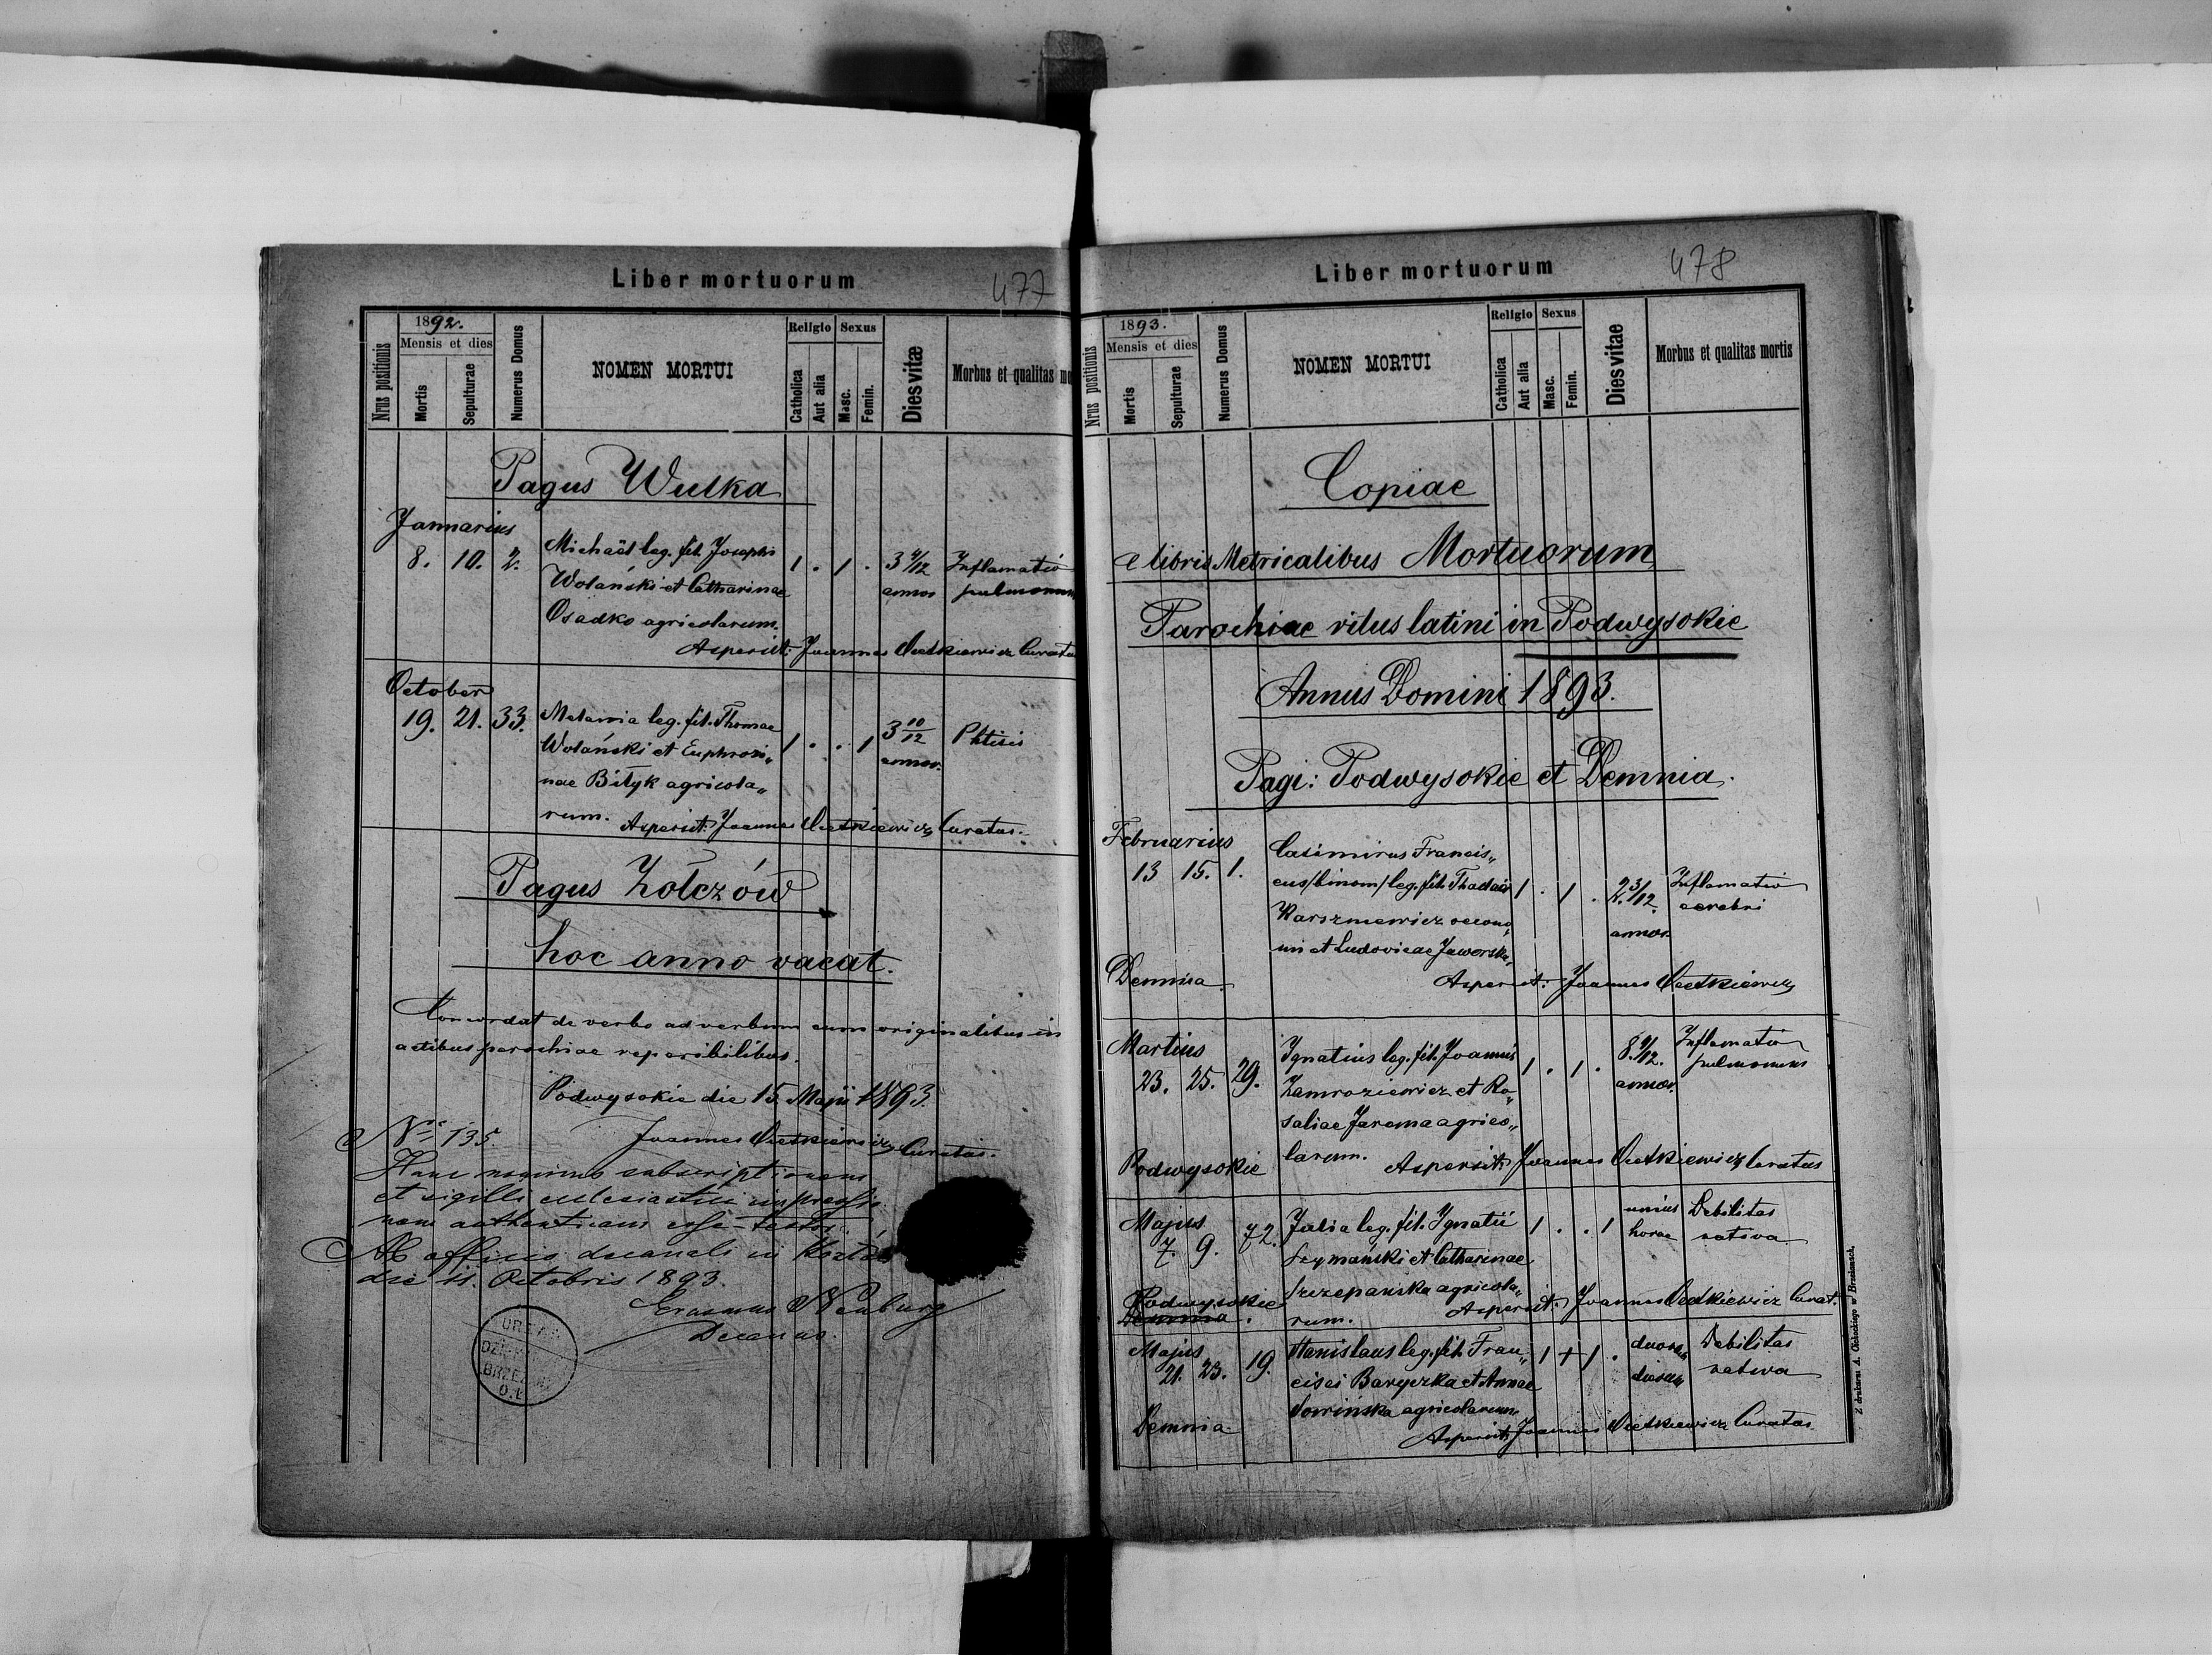 Liber mortuorum
477
Nrus positionis
1892.
Mensis et dies
Mortis
Sepulturae
Numerus Domus
NOMEN MORTUI
Religio
Catholica
Aut alia
Sexus
Masc.
Femin.
Dies vitæ
Morbus et qualitas mo
Pagus Wulka
Januarius
8. 10. 2. Michaël leg. fil. Josephi 1 . 1 . 3 4/12 Inflamatio
Wolański et Catharinae annor pulmonum
Osadko agricolarum.
Aspersit: Joannes Curatus
October
19. 21. 33. Melania leg. fil. Thomae 1 . . 1 3 10/12 Phtisis
Wolański et Euphrosi„ annor.
nae Bityk agricola„
rum. Aspersit: Joannes Curatus.
Pagus Żołczów
hoc anno vacat.
Concordat de verbo ad verbum cum originalibus in
actibus parochiae reperibilibus.
Podwysokie die 15. Maji 1893.
Nrs 135 Joannes Curatus.
Hanc nominis subscriptionem
et sigilli ecclesiastici impressio
nem authenticam esse testor.
Ab officio decanali in
die 11. Octobris 1893.
Erasmus Neuburg
Decanus.
Liber mortuorum
478
Nrus positionis
1893.
Mensis et dies
Mortis
Sepulturae
Numerus Domus
NOMEN MORTUI
Religio
Catholica
Aut alia
Sexus
Masc.
Femin.
Dies vitae
Morbus et qualitas mortis
Copiae
e libris Metricalibus Mortuorum
Parochiae ritus latini in Podwysokie
Annus Domini 1893.
Pagi: Podwysokie et Demnia.
Februarius
13 15. 1. Casimirus Francis„
cus/binom/leg. fil. Thadaei 1 . 1 . 2 3/12. Inflamatio
oecono„ annor. cerebri
mi et Ludovicae Jaworska„
Demnia. Aspersit: Joannes
Martius
23. 25. 29. Ignatius leg. fil. Joannis 1 . 1 . 8 9/12. Inflamatio
Zamroziewicz et Ro„ annor. pulmonum
saliae Jarema agrico„
Podwysokie larum. Aspersit: Joannes Curatus
Majus
7. 9. 72. Julia leg. fil. Ignatii 1 . . 1 unius Debilitas
Szymański et Catharinae horae nativa
Szczepańska agricola„
Podwysokie
Demnia. rum. Aspersit: Joannes Curat.
Majus
21. 23. 19. Stanislaus leg. fil. Fran„ 1 + 1 . duorum Debilitas
cisci Baryczka et Annae dierum nativa
Sowińska agricolarum
Demnia. Aspersit: Joannes Curatus.
Z drukarni A. Cichockiego w Brzeżanach.